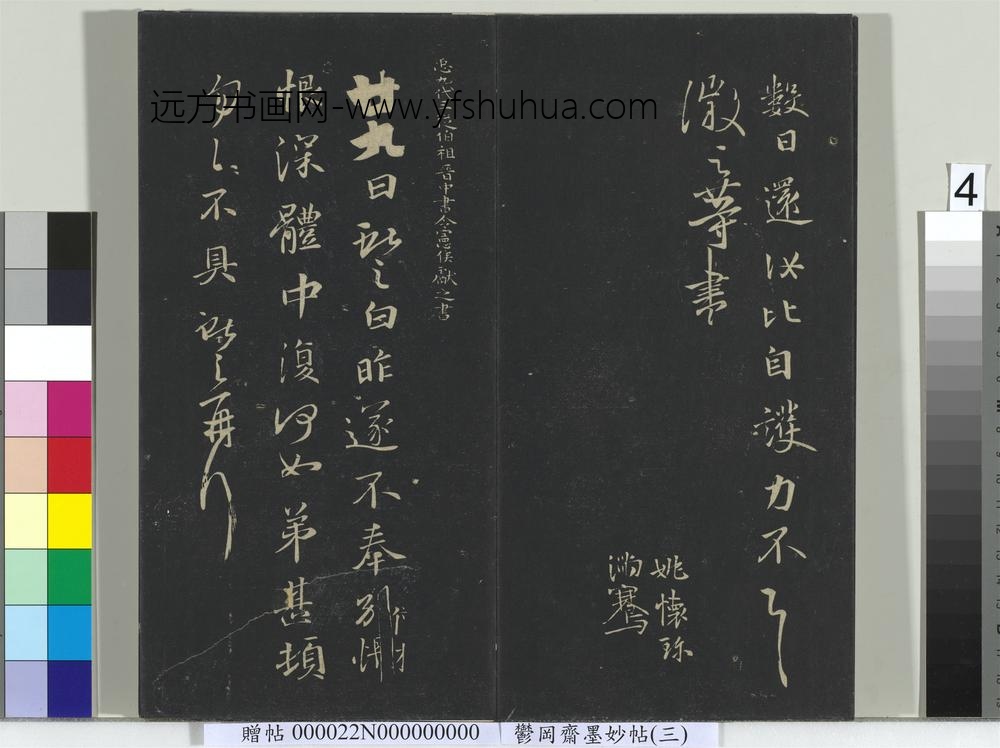 數日還汝比自護力不
徽之等書
姚懷珍
滿騫
臣九代三從伯祖晉中書令憲侯獻之書
廿九日獻之白昨遂不奉別悵
恨深體中復何如弟甚頓
匆匆不具獻之再
远方书画网-www.yfshuhua.com
4
贈帖 000022N000000000 鬱岡齋墨妙帖(三)